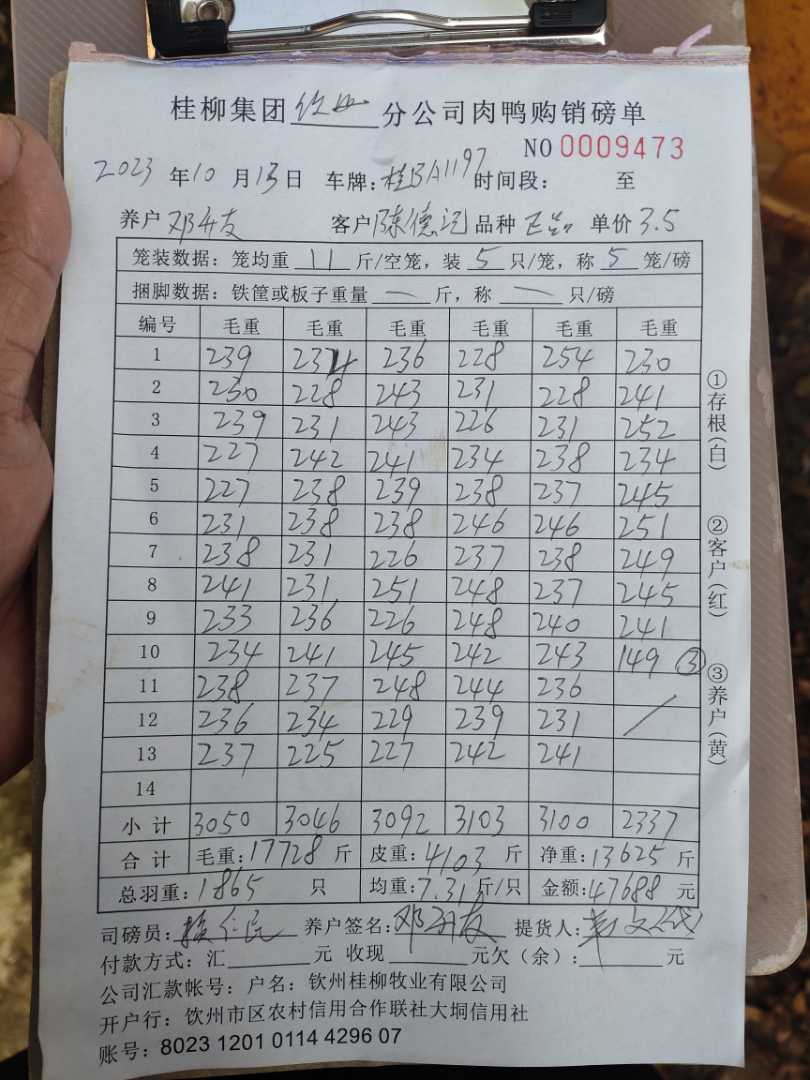 桂柳集团 钦州 分公司肉鸭购销磅单
NO 0009473
2023 年 10 月 13 日 车牌:桂BA1197 时间段: 至
养户 邓开友 客户 陈德记 品种 单价 3.5
笼装数据:笼均重 11 斤/空笼,装 5 只/笼,称 5 笼/磅
捆脚数据:铁筐或板子重量 — 斤,称 — 只/磅
编号 毛重 毛重 毛重 毛重 毛重 毛重
1 239 234 236 228 254 230
2 230 228 243 231 228 241
3 239 231 243 226 231 252
4 227 242 241 234 238 234
5 227 238 239 238 237 245
6 231 238 238 246 246 251
7 238 231 226 237 238 249
8 241 231 251 248 237 245
9 233 236 226 248 240 241
10 234 241 245 242 243 149 ③
11 238 237 248 244 236
12 236 234 229 239 231 /
13 237 225 227 242 241
14
小计 3050 3046 3092 3103 3100 2337
合计 毛重:17728 斤 皮重:4103 斤 净重:13625 斤
总羽重:1865 只 均重:7.31 斤/只 金额:47688 元
司磅员: 养户签名:邓开友 提货人:
付款方式:汇 元 收现 元欠(余): 元
公司汇款帐号:户名:钦州桂柳牧业有限公司
开户行:钦州市区农村信用合作联社大垌信用社
账号:8023 1201 0114 4296 07
①存根(白)
②客户(红)
③养户(黄)